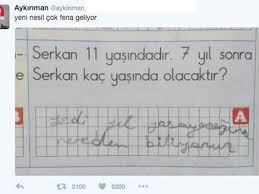 Aykırıman @aykiriman
yeni nesil çok fena geliyor
Serkan 11 yaşındadır. 7 yıl sonra
e Serkan kaç yaşında olacaktır?
B A
yedi yıl yaşayacağını
nereden biliyorsun
12 5200 6200